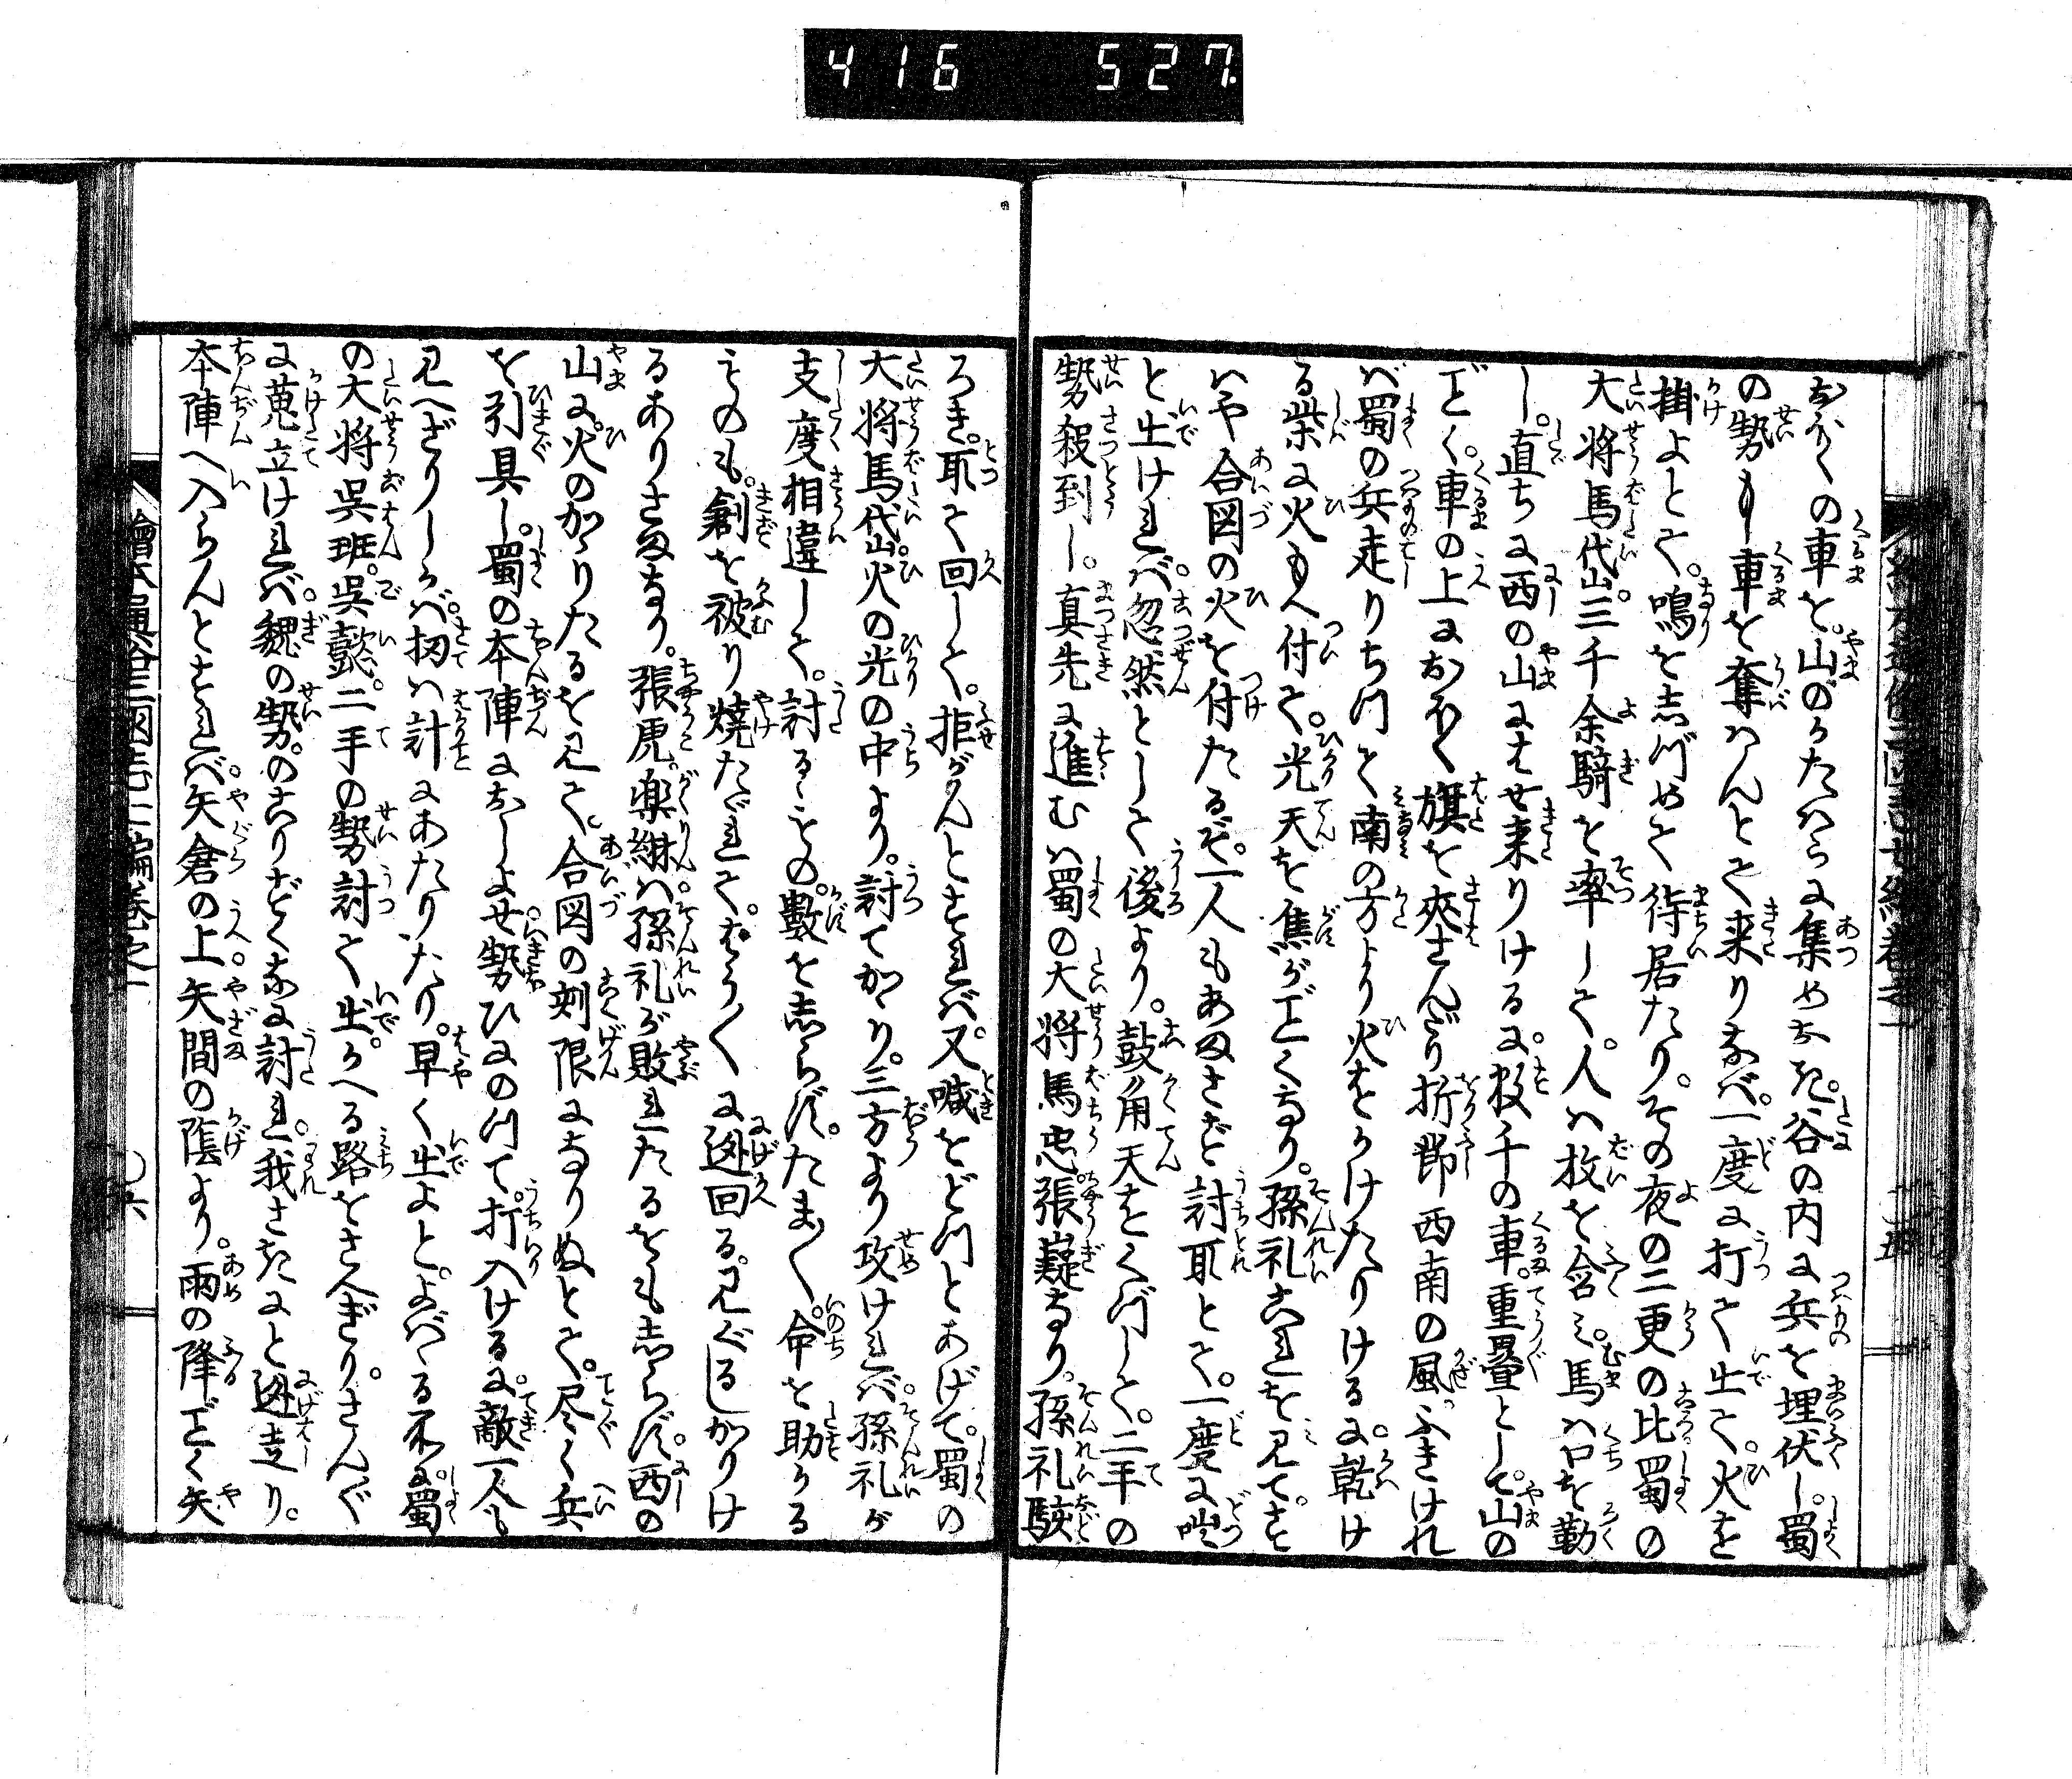 416 527
おほくの車を。山のかたハらに集めおき。谷の内に兵を埋伏し。蜀
の勢もし車を奪ハんとて来りなバ。一度に打て出て。火を
掛よとて。鳴を志づめて待居たり。その夜の二更の比蜀の
大将馬岱。三千余騎を率して。人ハ枚を含ミ。馬ハ口を勒
し。直ちに西の山にはせ来りけるに。数千の車。重畳として。山の
ごとく。車の上におほく旗を夾さんだり折節西南の風。ふきけれ
バ蜀の兵走りちつて南の方より火をかけたりけるに。乾け
る柴に火もへ付て。光天を焦がごとくなり。孫礼これを見て。す
ハや合図の火を付たるぞ。一人もあまさず討取とて。一度に咄
と出けれバ。忽然として後より。鼓角天をくづして。二手の
勢殺到し。真先に進むハ蜀の大将馬忠。張嶷なり。孫礼駭
ろき。取て回して。拒がんとすれバ。又喊をどつとあげて。蜀の
大将馬岱。火の光の中より。討てかゝり。三方より攻けれバ。孫礼が
支度相違して。討るゝもの。数を志らず。たま〳〵命を助かる
ものも。創を被り焼たゞれて。はう〳〵に迯回る。見ぐるしかりけ
るありさまなり。張虎。楽綝ハ孫礼が敗れたるをも志らず。西の
山に。火のかゝりたるを見て。合図の刻限になりぬとて。尽く兵
を引具し。蜀の本陣におしよせ。勢ひにのつて。打入けるに。敵一人も
見へざりしかバ。扨ハ計にあたりたり。早く出よと。よバゝる所に。蜀
の大将呉班。呉懿。二手の勢討て出。かへる路をさへぎり。さんざ
に蒐立けれバ。魏の勢。のこりずくなに討れ。我さきにと迯走り。
本陣へ入らんとすれバ。矢倉の上。矢間の陰より。雨の降ごとく矢
繪本通俗三国志七編巻之一
〇六